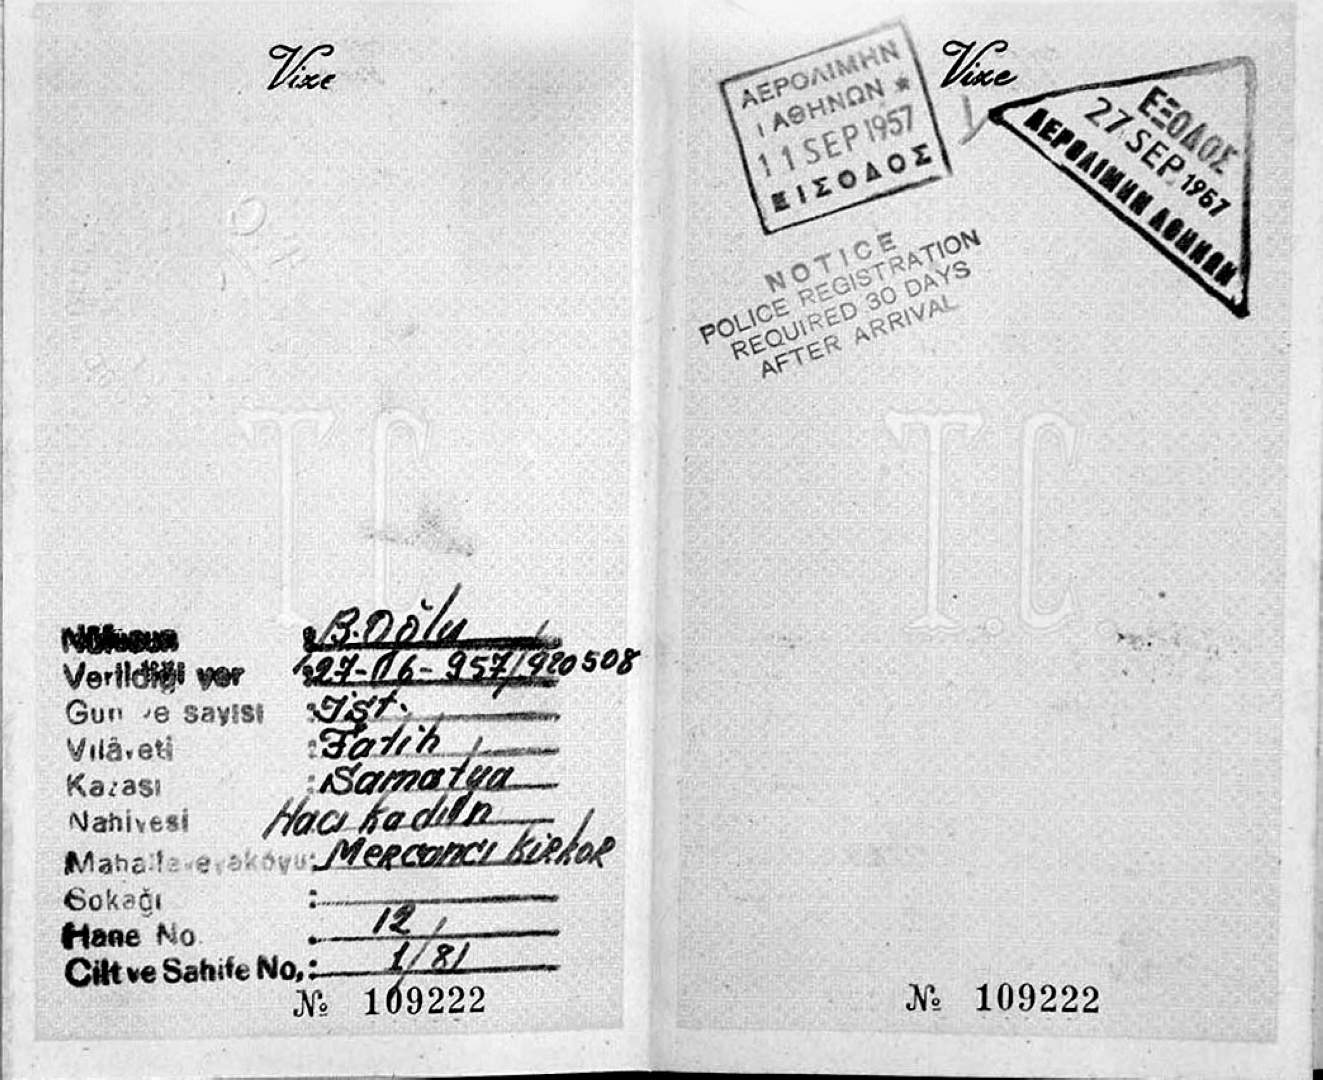 Vize
Nüfusun : B.Oğlu
Verildiği yer : 27-06-957/920508
Gun ve sayısı : İst.
Vılâyeti : Fatih
Kazası : Samatya
Nahiyesi Hacı Kadın
Mahalle veyaköyu: Mercancı KiRKOR
Sokağı :
Hane No. 12
Cilt ve Sahife No,: 1/81
№ 109222
Vize
ΑΕΡΟΛΙΜΗΝ
ΑΘΗΝΩΝ *
11 SEP 1957
ΕΙΣΟΔΟΣ
ΕΞΟΔΟΣ
27 SEP 1957
ΑΕΡΟΛΙΜΗΝ ΑΘΗΝΩΝ
NOTICE
POLICE REGISTRATION
REQUIRED 30 DAYS
AFTER ARRIVAL
T.C.
T.C.
№ 109222